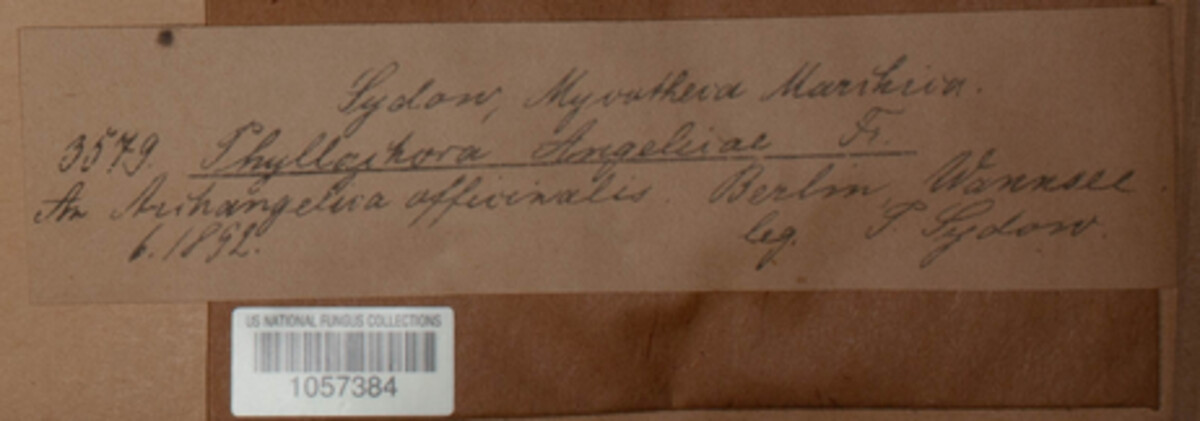 Sydow, Mycotheca Marchica.
3579. Phyllachora Angelicae Fr.
An Archangelica officinalis. Berlin, Wannsee
6.1892. leg. P Sydow.
US NATIONAL FUNGUS COLLECTIONS
1057384